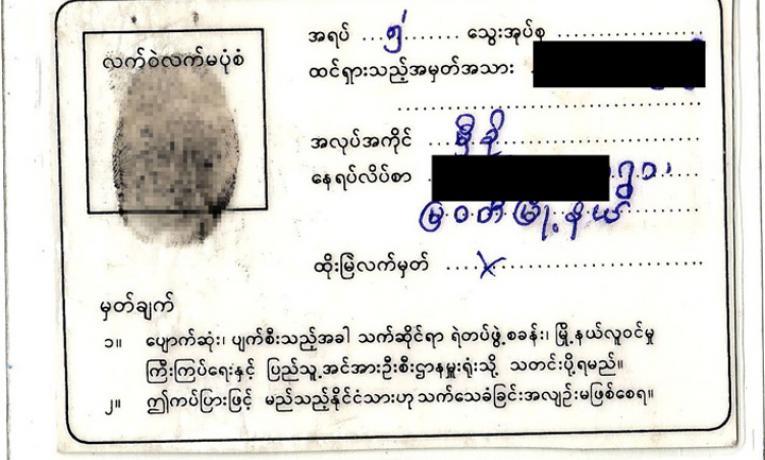 လက်ဝဲလက်မပုံစံ
အရပ် ...၅'...... သွေးအုပ်စု ....................
ထင်ရှားသည့်အမှတ်အသား
အလုပ်အကိုင် ... မှီခို ....................
နေရပ်လိပ်စာ ရွာ၊
မြဝတီမြို့နယ်
ထိုးမြဲလက်မှတ် .... x ....................
မှတ်ချက်
၁။ ပျောက်ဆုံး၊ ပျက်စီးသည့်အခါ သက်ဆိုင်ရာ ရဲတပ်ဖွဲ့စခန်း၊ မြို့နယ်လူဝင်မှု
ကြီးကြပ်ရေးနှင့် ပြည်သူ့အင်အားဦးစီးဌာနမှူးရုံးသို့ သတင်းပို့ရမည်။
၂။ ဤကပ်ပြားဖြင့် မည်သည့်နိုင်ငံသားဟု သက်သေခံခြင်းအလျဉ်းမဖြစ်စေရ။